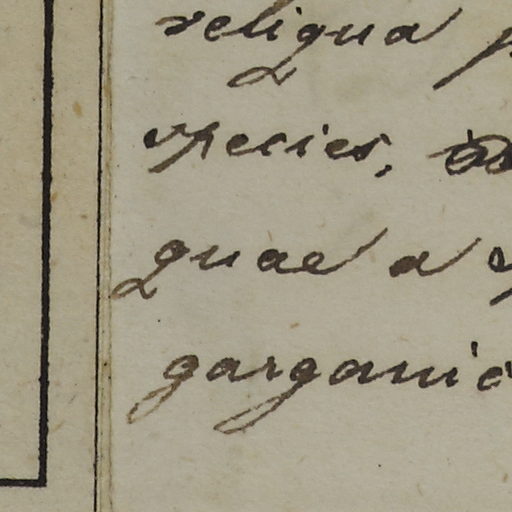 reliqua
species,
quae a
garganic